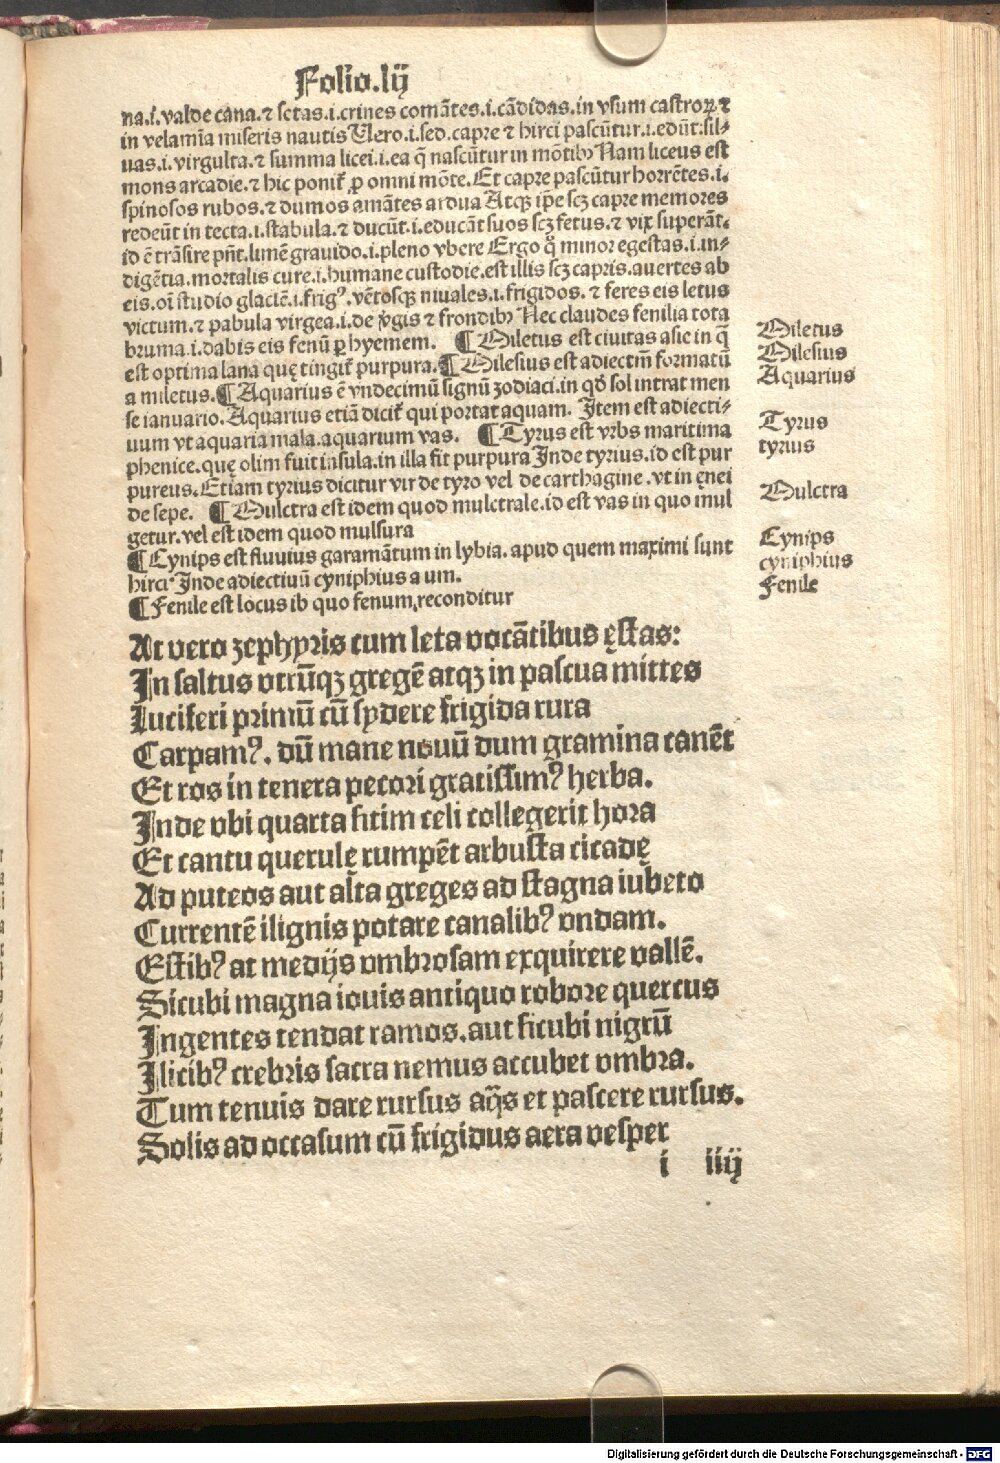 Folio.lij
na.i.valde cana.⁊ setas.i.crines comātes.i.cādidas.in vsum castroꝝ ⁊
in velamīa miseris nautis Uero.i.sed.capre ⁊ hirci pascūtur.i.edūt.sil-
uas.i.virgulta.⁊ summa licei.i.ea q̄ nascūtur in mōtibꝰ Nam liceus est
mons arcadie.⁊ hic ponit᷑ ꝓ omni mōte.Et capre pascūtur horrētes.i.
spinosos rubos.⁊ dumos amātes ardua Atqꝫ ip̄e scꝫ capre memores
redeūt in tecta.i.stabula.⁊ ducūt.i.educāt suos scꝫ fetus.⁊ vix superāt.
id ē trāsire pn̄t.limē grauido.i.pleno vbere Ergo q̄ minor egestas.i.in-
digētia.mortalis cure.i.humane custodie.est illis scꝫ capris.auertes ab
eis.oī studio glaciē.i.frigꝰ.vētosqꝫ niuales.i.frigidos.⁊ feres eis letus
victum.⁊ pabula virgea.i.de v̓gis ⁊ frondibꝰ Nec claudes fenilia tota
bruma.i.dabis eis fenū ꝑ hyemem. ¶ Miletus est ciuitas asie in q̄
est optima lana quę tingit᷑ purpura.¶ Milesius est adiectm̄ formatū
a miletus.¶ Aquarius ē vndecimū signū zodiaci.in qd̄ sol intrat men
se ianuario.Aquarius etiā dicit᷑ qui portat aquam. Item est adiecti-
uum vt aquaria mala.aquarium vas. ¶ Tyrus est vrbs maritima
phenice.quę olim fuit insula.in illa fit purpura Inde tyrius.id est pur
pureus.Etiam tyrius dicitur vir de tyro vel de carthagine.vt in ęnei
de sepe. ¶ Mulctra est idem quod mulctrale.id est vas in quo mul
getur.vel est idem quod mulsura
¶ Cynips est fluuius garamātum in lybia.apud quem maximi sunt
hirci Inde adiectiuū cyniphius a um.
¶ Fenile est locus ib quo fenum reconditur
Miletus
Milesius
Aquarius
Tyrus
tyrius
Mulctra
Cynips
cyniphius
Fenile
At vero zephyris cum leta vocātibus ęstas:
In saltus vtrūqꝫ gregē atqꝫ in pascua mittes
Luciferi primū cū sydere frigida rura
Carpamꝰ. dū mane nouū dum gramina canēt
Et ros in tenera pecori gratissimꝰ herba.
Inde vbi quarta sitim celi collegerit hora
Et cantu querulę rumpēt arbusta cicadę
Ad puteos aut alta greges ad stagna iubeto
Currentē ilignis potare canalibꝰ vndam.
Estibꝰ at medijs vmbrosam exquirere vallē.
Sicubi magna iouis antiquo robore quercus
Ingentes tendat ramos.aut sicubi nigrū
Ilicibꝰ crebris sacra nemus accubet vmbra.
Tum tenuis dare rursus aq̄s et pascere rursus.
Solis ad occasum cū frigidus aera vesper
i iiij
Digitalisierung gefördert durch die Deutsche Forschungsgemeinschaft - DFG